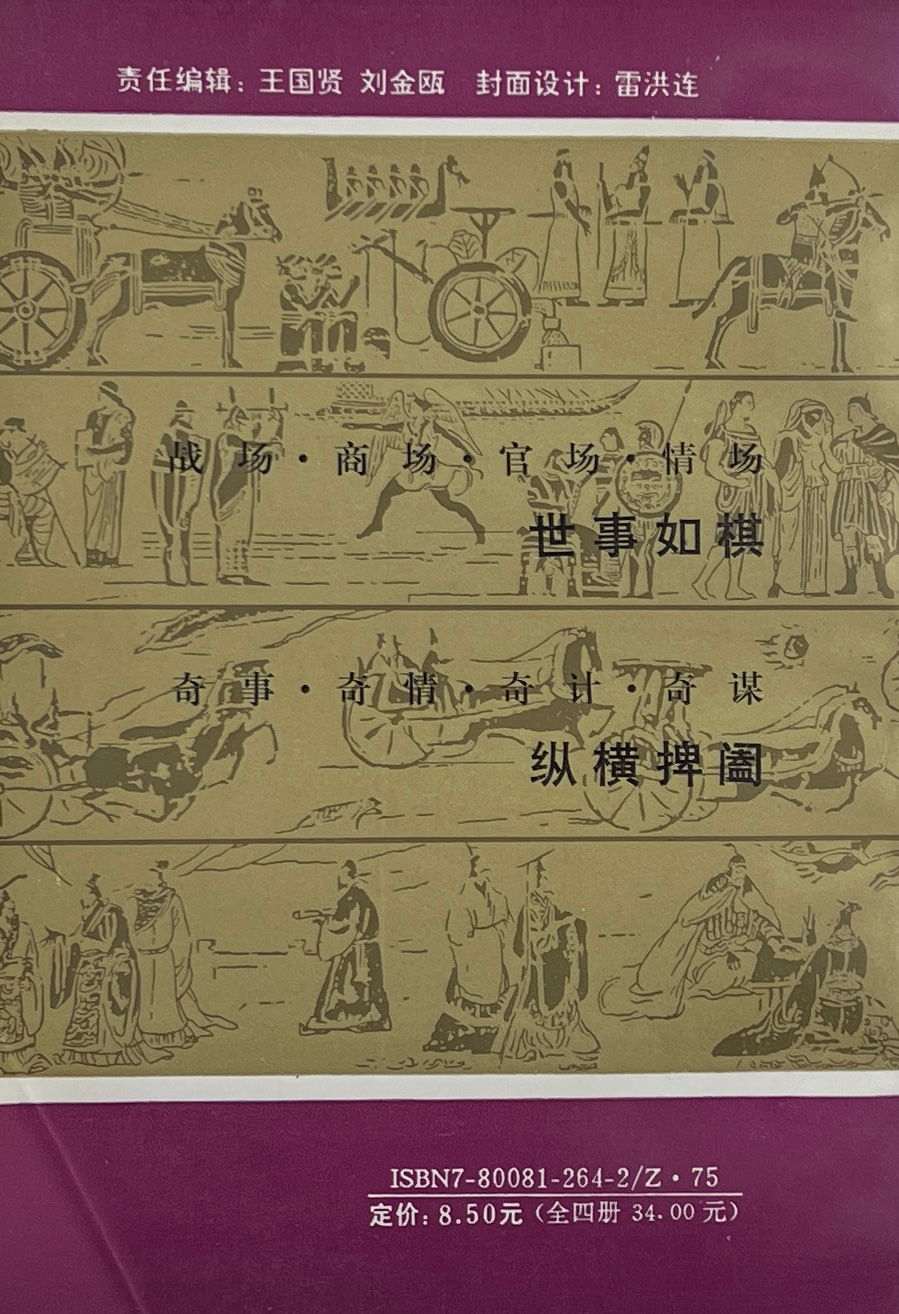 责任编辑：王国贤 刘金瓯 封面设计：雷洪连
战场·商场·官场·情场
世事如棋
奇事·奇情·奇计·奇谋
纵横捭阖
ISBN7-80081-264-2/Z·75
定价：8.50元（全四册 34.00 元）